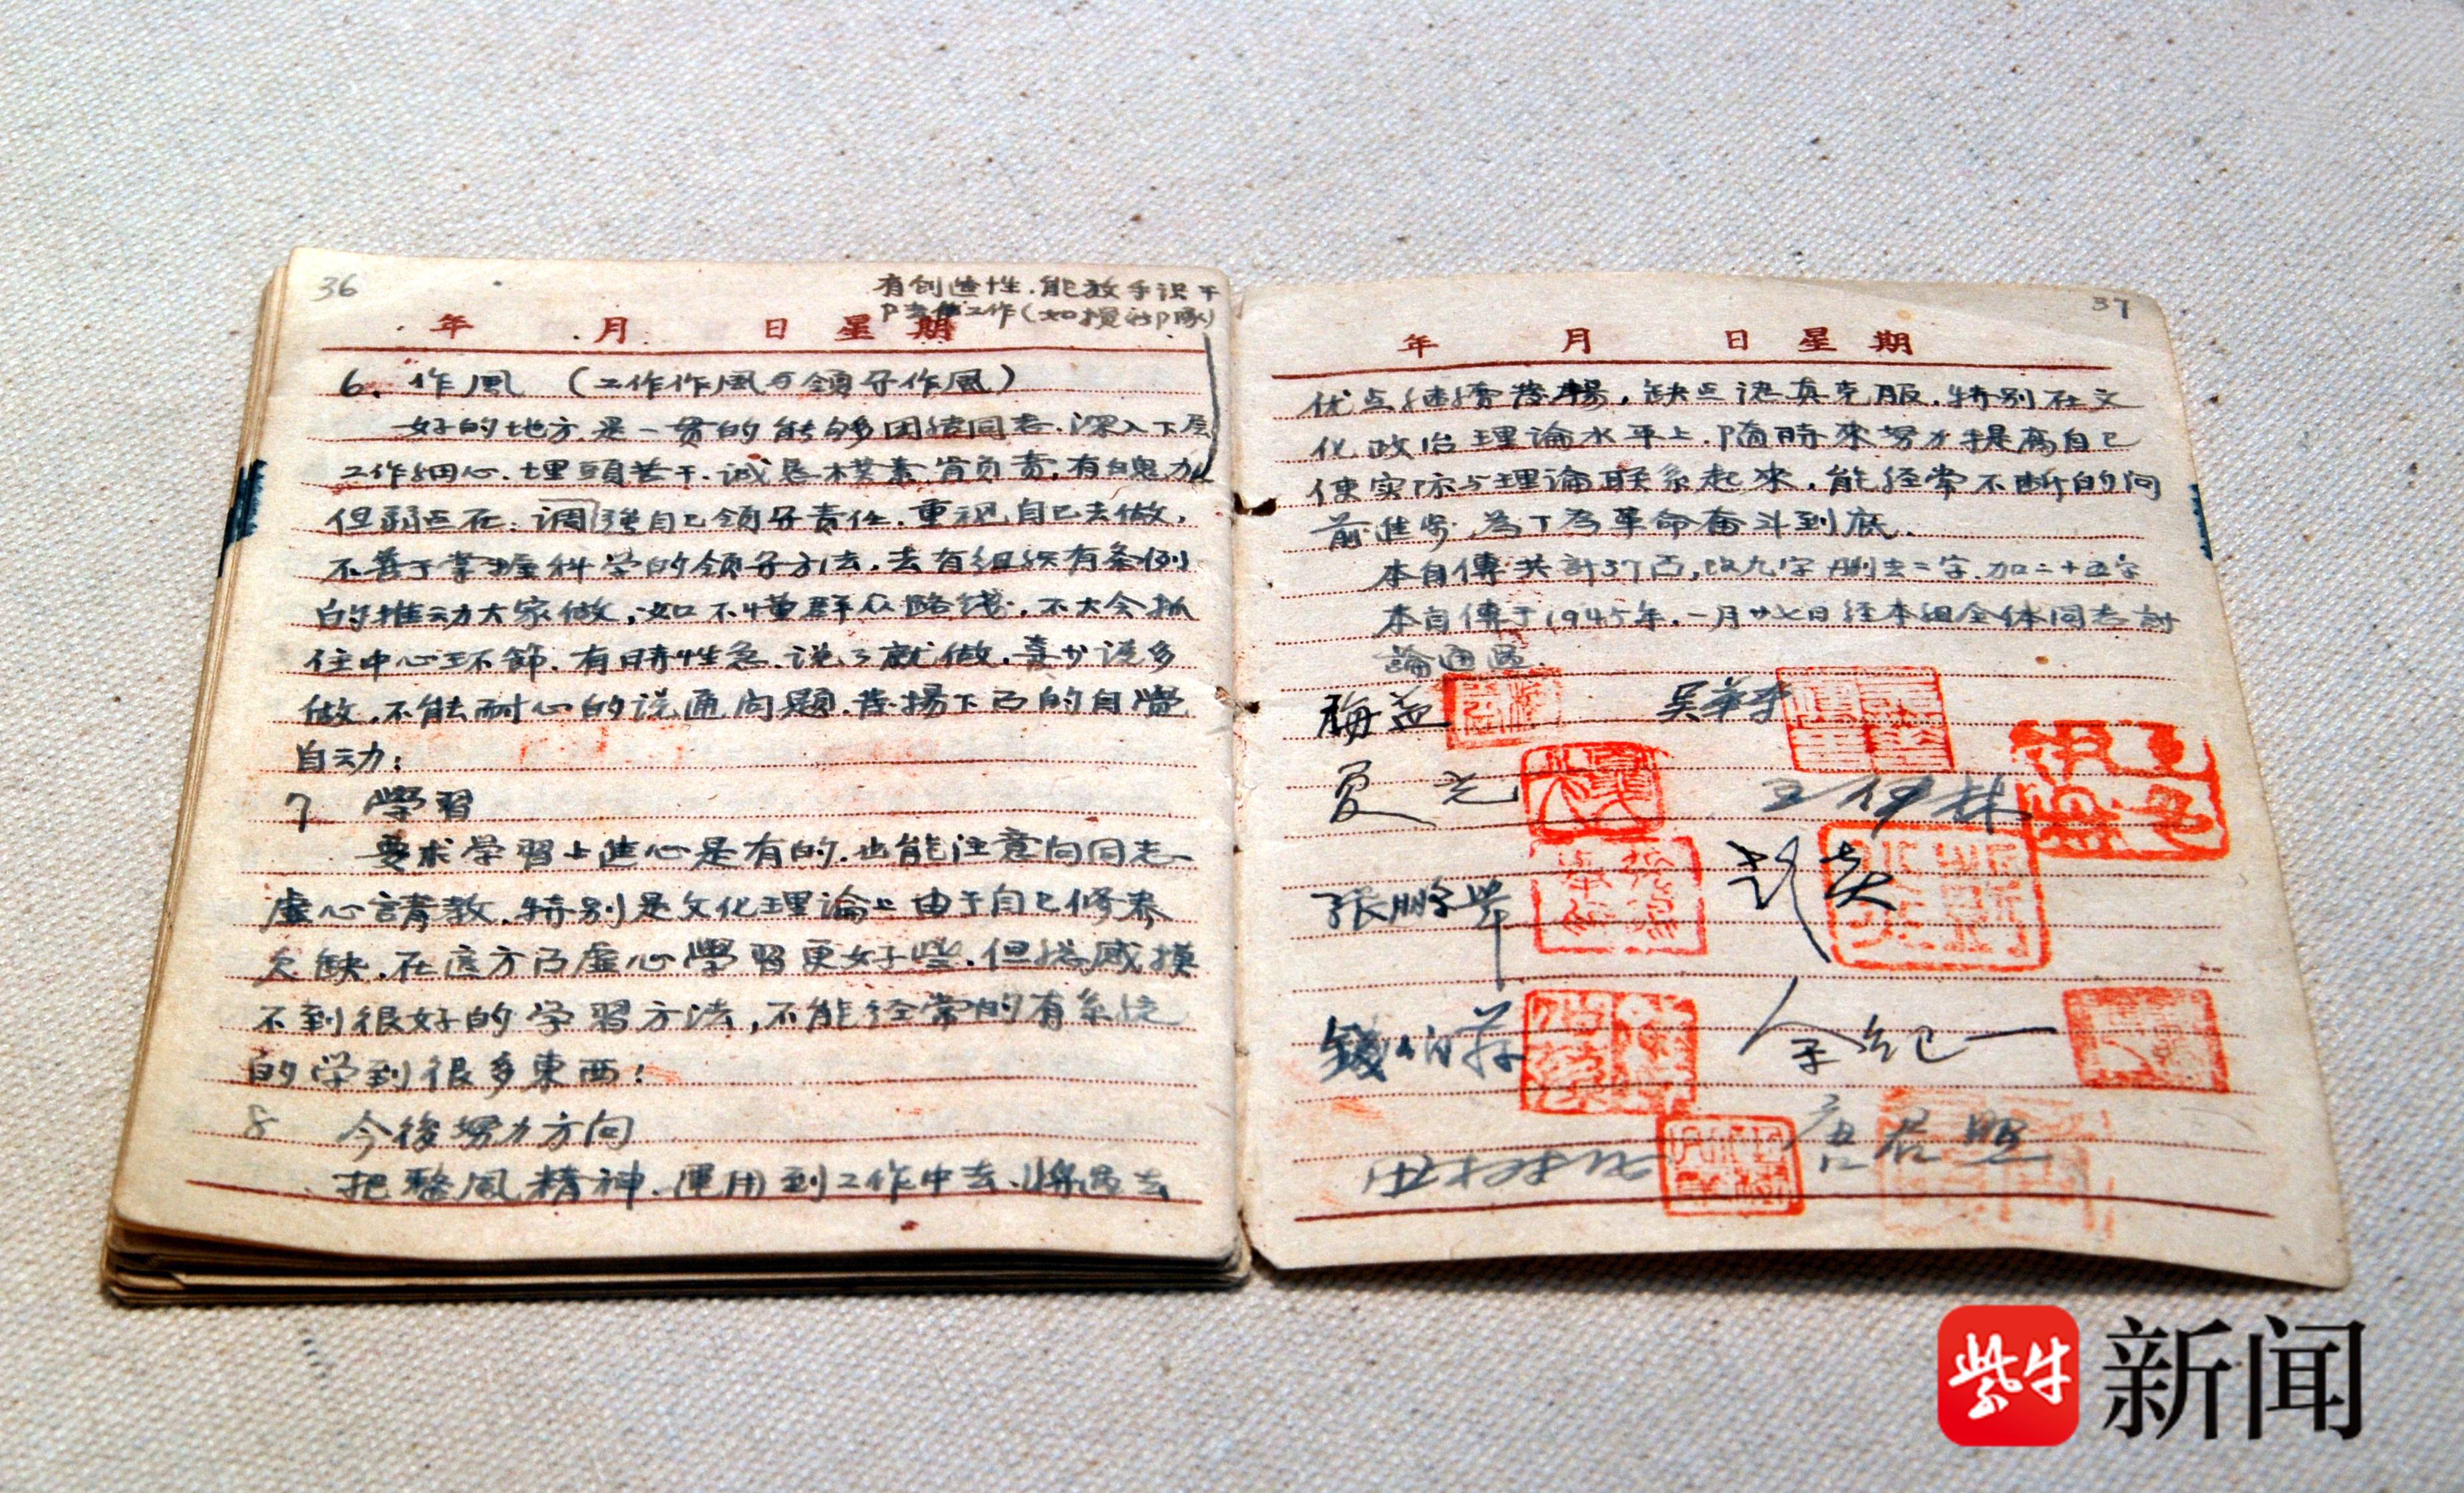 36
有创造性.能放手识干
P去做工作(如
年 月 日 星 期
6. 作風 (工作作風与領导作風)
好的地方是一贯的能够团结同志.深入下层
工作细心.埋頭苦干.诚恳樸素.肯负责,有魄力
但弱点在:調强自己領导责任.重视自己去做,
不善于掌握科学的领导方法,去有组织有条例
的推动大家做,如不懂群众路线.不大会抓
住中心环節.有時性急.说了就做.喜少说多
做.不能耐心的说通问题.發揚下面的自覺
自动;
7 學習
要求学習上進心是有的.也能注意向同志
虚心請教.特别是文化理論上由于自己修养
欠缺.在這方面虚心學習更好些.但摸
不到很好的学習方法,不能经常的有系统
的学到很多東西;
8 今後努力方向
把整風精神.運用到工作中去.將过去
37
年 月 日 星 期
优点继續發揚,缺点认真克服.特别在文
化政治理論水平上.随時來努力提高自己
使实际与理論联系起來,能经常不断的向
前進步.為了為革命奋斗到底.
本自傳共計37面,改九字删去二字.加二十五字
本自傳于1945年.一月廿七日经本组全体同志討
論通過.
梅益 吴華
夏光 王仲
張鵬舉 彭炎
錢 余纪一
唐君照
紫牛 新闻